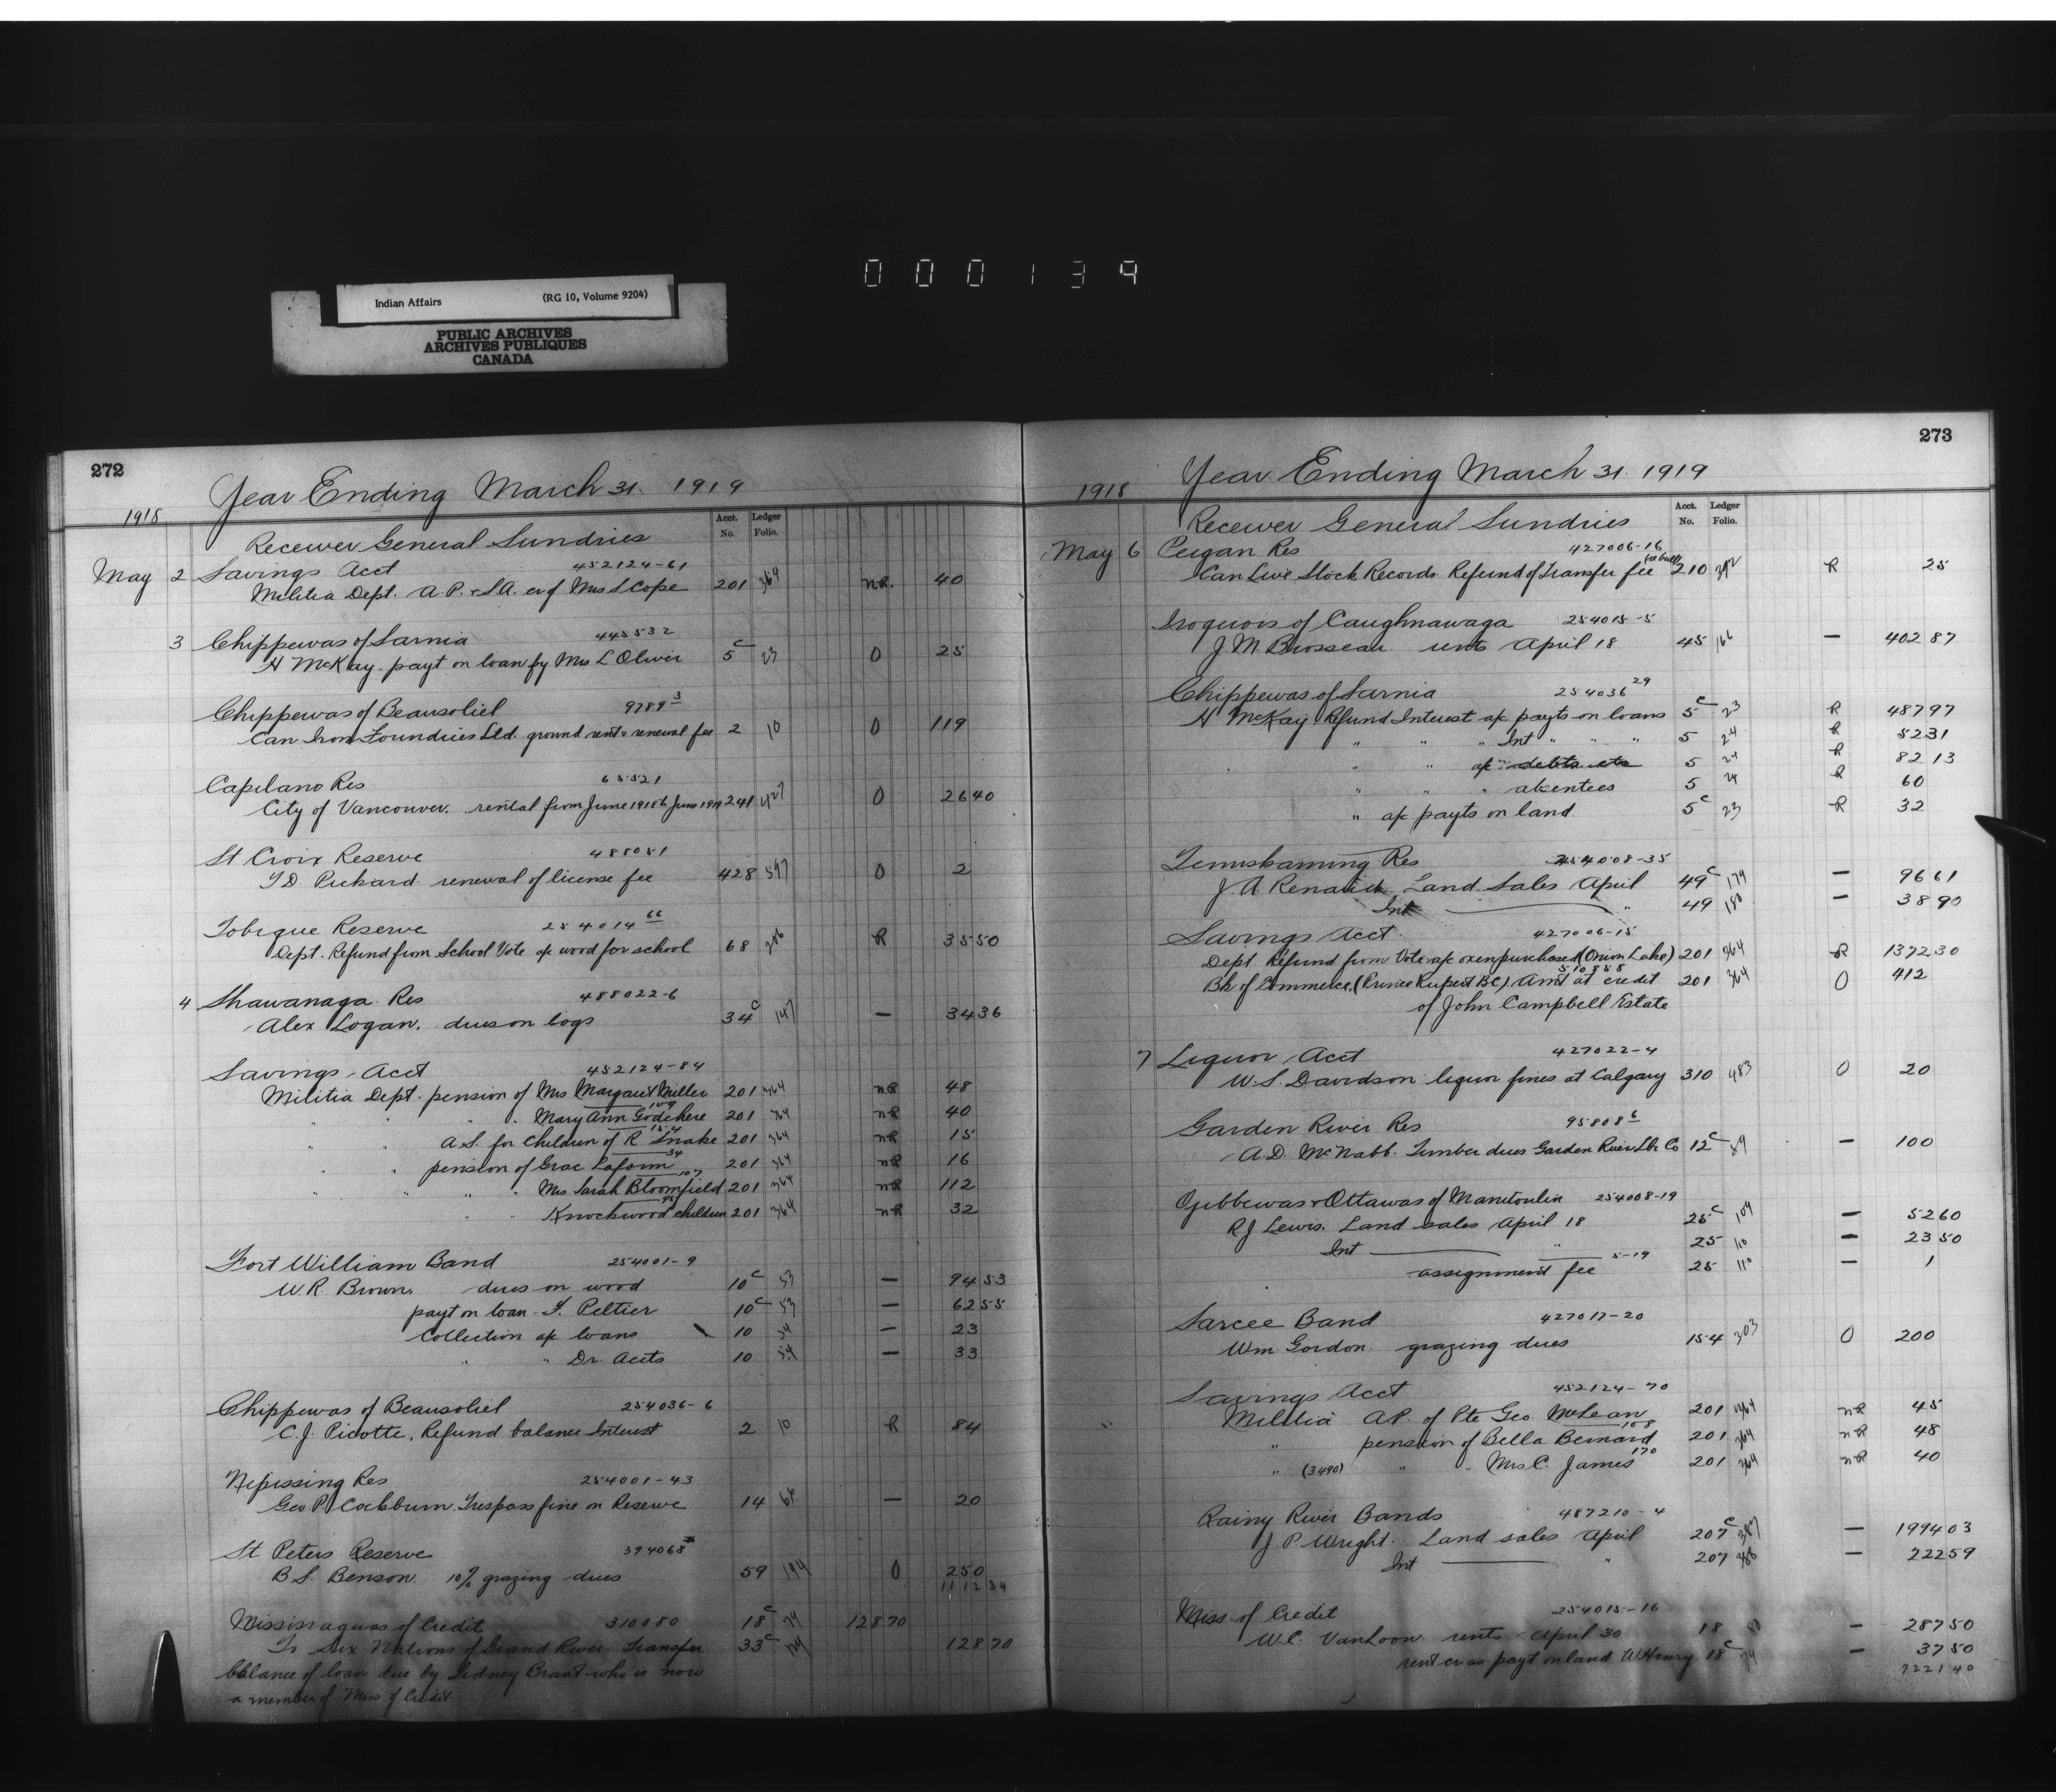 000139
Indian Affairs (RG 10, Volume 9204)
PUBLIC ARCHIVES
ARCHIVES PUBLIQUES
CANADA
272
Year Ending March 31. 1919
1918
Acct. No. Ledger Folio.
Receiver General Sundries
May 2 Savings Acct 452124-61
Militia Dept. A.P. & S.A. of Mrs S Cope 201 364 nR. 40
3 Chippewas of Sarnia 445532
H McKay payt on loan by Mrs L Oliver 5c 23 O 25
Chippewas of Beausoliel 9789 3
Can Iron Foundries Ltd. ground rent & renewal fee 2 10 O 119
Capilano Res 65521
City of Vancouver. rental from June 1918 to June 1919 241 427 O 2640
St Croix Reserve 488081
T.D. Pickard renewal of license fee 428 597 O 2
Tobique Reserve 254014 66
Dept. Refund from School Vote a/c wood for school 68 206 R 3550
4 Shawanaga Res 488022-6
Alex Logan. dues on logs 34c 147 — 3436
Savings Acct 452124-84
Militia Dept. pension of Mrs Margaret Miller 201 364 nR 48
" " " " Mary Ann Godchere 201 364 nR 40
" " A.S. for Children of R Snake 201 364 nR 15
" " pension of Grac Laform 34 201 364 nR 16
" " " " Mrs Sarah Bloomfield 107 201 364 nR 112
" " Knockwood children 201 364 nR 32
Fort William Band 254001-9
W.R. Brown. dues on wood 10c 53 — 9453
payt on loan F. Peltier 10c 53 — 6255
Collection a/c loans 10 54 — 23
" " Dr. Accts 10 54 — 33
Chippewas of Beausoliel 254036-6
C.J. Picotte. Refund balance Interest 2 10 R 84
Nipissing Res 254001-43
Geo P. Cockburn. Trespass fine on Reserve 14 64 — 20
St Peters Reserve 394068
B S. Benson. 10% grazing dues 59 194 O 250
111234
Mississaguas of Credit 310080 18c 79 12870
To Six Nations of Grand River Transfer 33c 12870
balance of loan due by Sidney Brant who is now
a member of Miss of Credit
273
Year Ending March 31. 1919
1918
Acct. No. Ledger Folio.
Receiver General Sundries
May 6 Peigan Res 427006-16
Can Live Stock Records Refund of Transfer fee 210 392 R 25
Iroquois of Caughnawaga 254015-5
J.M. Brosseau rents April 18 45 166 — 40287
Chippewas of Sarnia 254036 29
H McKay Refund Interest a/c payts on loans 5c 23 R 48797
" " " Int " " " 5 24 R 5231
" " a/c debts etc 5 24 R 8213
" " " absentees 5 24 R 60
" a/c payts on land 5c 23 R 32
Temiskaming Res 254008-35
J.A Renaud Land Sales April 49c 179 — 9661
Int " 49 180 — 3890
Savings Acct 427006-15
Dept Refund from Vote a/c oxen purchased (Onion Lake) 201 364 R 137230
510858
Bk of Commerce, (Prince Rupert BC) Amt at credit 201 364 O 412
of John Campbell Estate
7 Liquor Acct 427022-4
W.S. Davidson liquor fines at Calgary 310 483 O 20
Garden River Res 95808 6
A.D. McNabb. Timber dues Garden River Lbr Co 12c 59 — 100
Ojibbewas & Ottawas of Manitoulin 254008-19
R J Lewis. Land sales April 18 25c 109 — 5260
Int " 25 110 — 2350
assignment fee 5-19 25 110 — 1
Sarcee Band 427017-20
Wm Gordon. grazing dues 154 303 O 200
Savings Acct 452124-70
Militia A.P. of Pte Geo. McLean 201 364 nR 45
" pension of Bella Bernard 108 201 364 nR 48
" (3490) " " Mrs C. James 170 201 364 nR 40
Rainy River Bands 487210-4
J P Wright. Land sales April 207c 387 — 199403
Int " 207 388 — 22259
Miss. of Credit 254015-16
W.C. VanLoon rents April 30 18 80 — 28750
rent cr as payt on land W Henry 18c 79 — 3750
722140